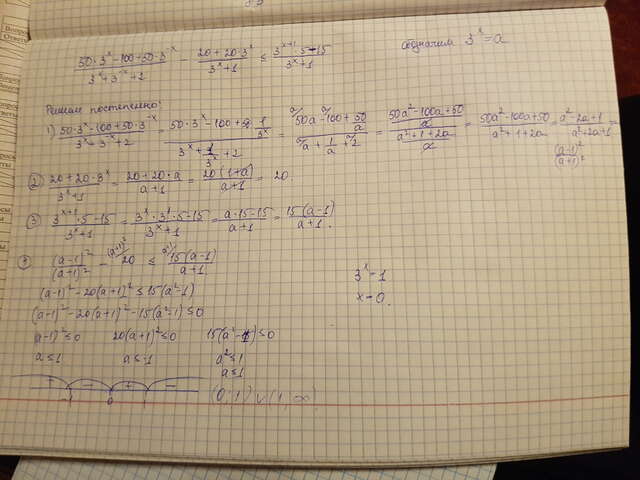 50·3ˣ-100+50·3⁻ˣ / 3ˣ+3⁻ˣ+2 - 20+20·3ˣ / 3ˣ+1 ≤ 3ˣ⁺¹·5-15 / 3ˣ+1
обозначим 3ˣ=a
Решим постепенно:
1) 50·3ˣ-100+50·3⁻ˣ / 3ˣ+3⁻ˣ+2 = 50·3ˣ-100+50·1/3ˣ / 3ˣ+1/3ˣ+2 = 50a-100+50/a / a+1/a+2 = 50a²-100a+50 / a / a²+1+2a / a = 50a²-100a+50 / a²+1+2a = a²-2a+1 / a²+2a+1 =
(a-1)² / (a+1)²
② 20+20·3ˣ / 3ˣ+1 = 20+20·a / a+1 = 20(1+a) / a+1 = 20.
③ 3ˣ⁺¹·5-15 / 3ˣ+1 = 3ˣ·3¹·5-15 / 3ˣ+1 = a·15-15 / a+1 = 15(a-1) / a+1.
(a-1)² / (a+1)² - 20 ≤ 15(a-1) / a+1
(a-1)²-20(a+1)² ≤ 15(a²-1)
(a-1)²-20(a+1)²-15(a²-1) ≤ 0
(a-1)²≤0 20(a+1)²≤0 15(a²-1)≤0
a≤1 a≤1 a²≤1
a≤1
3ˣ=1
x=0.